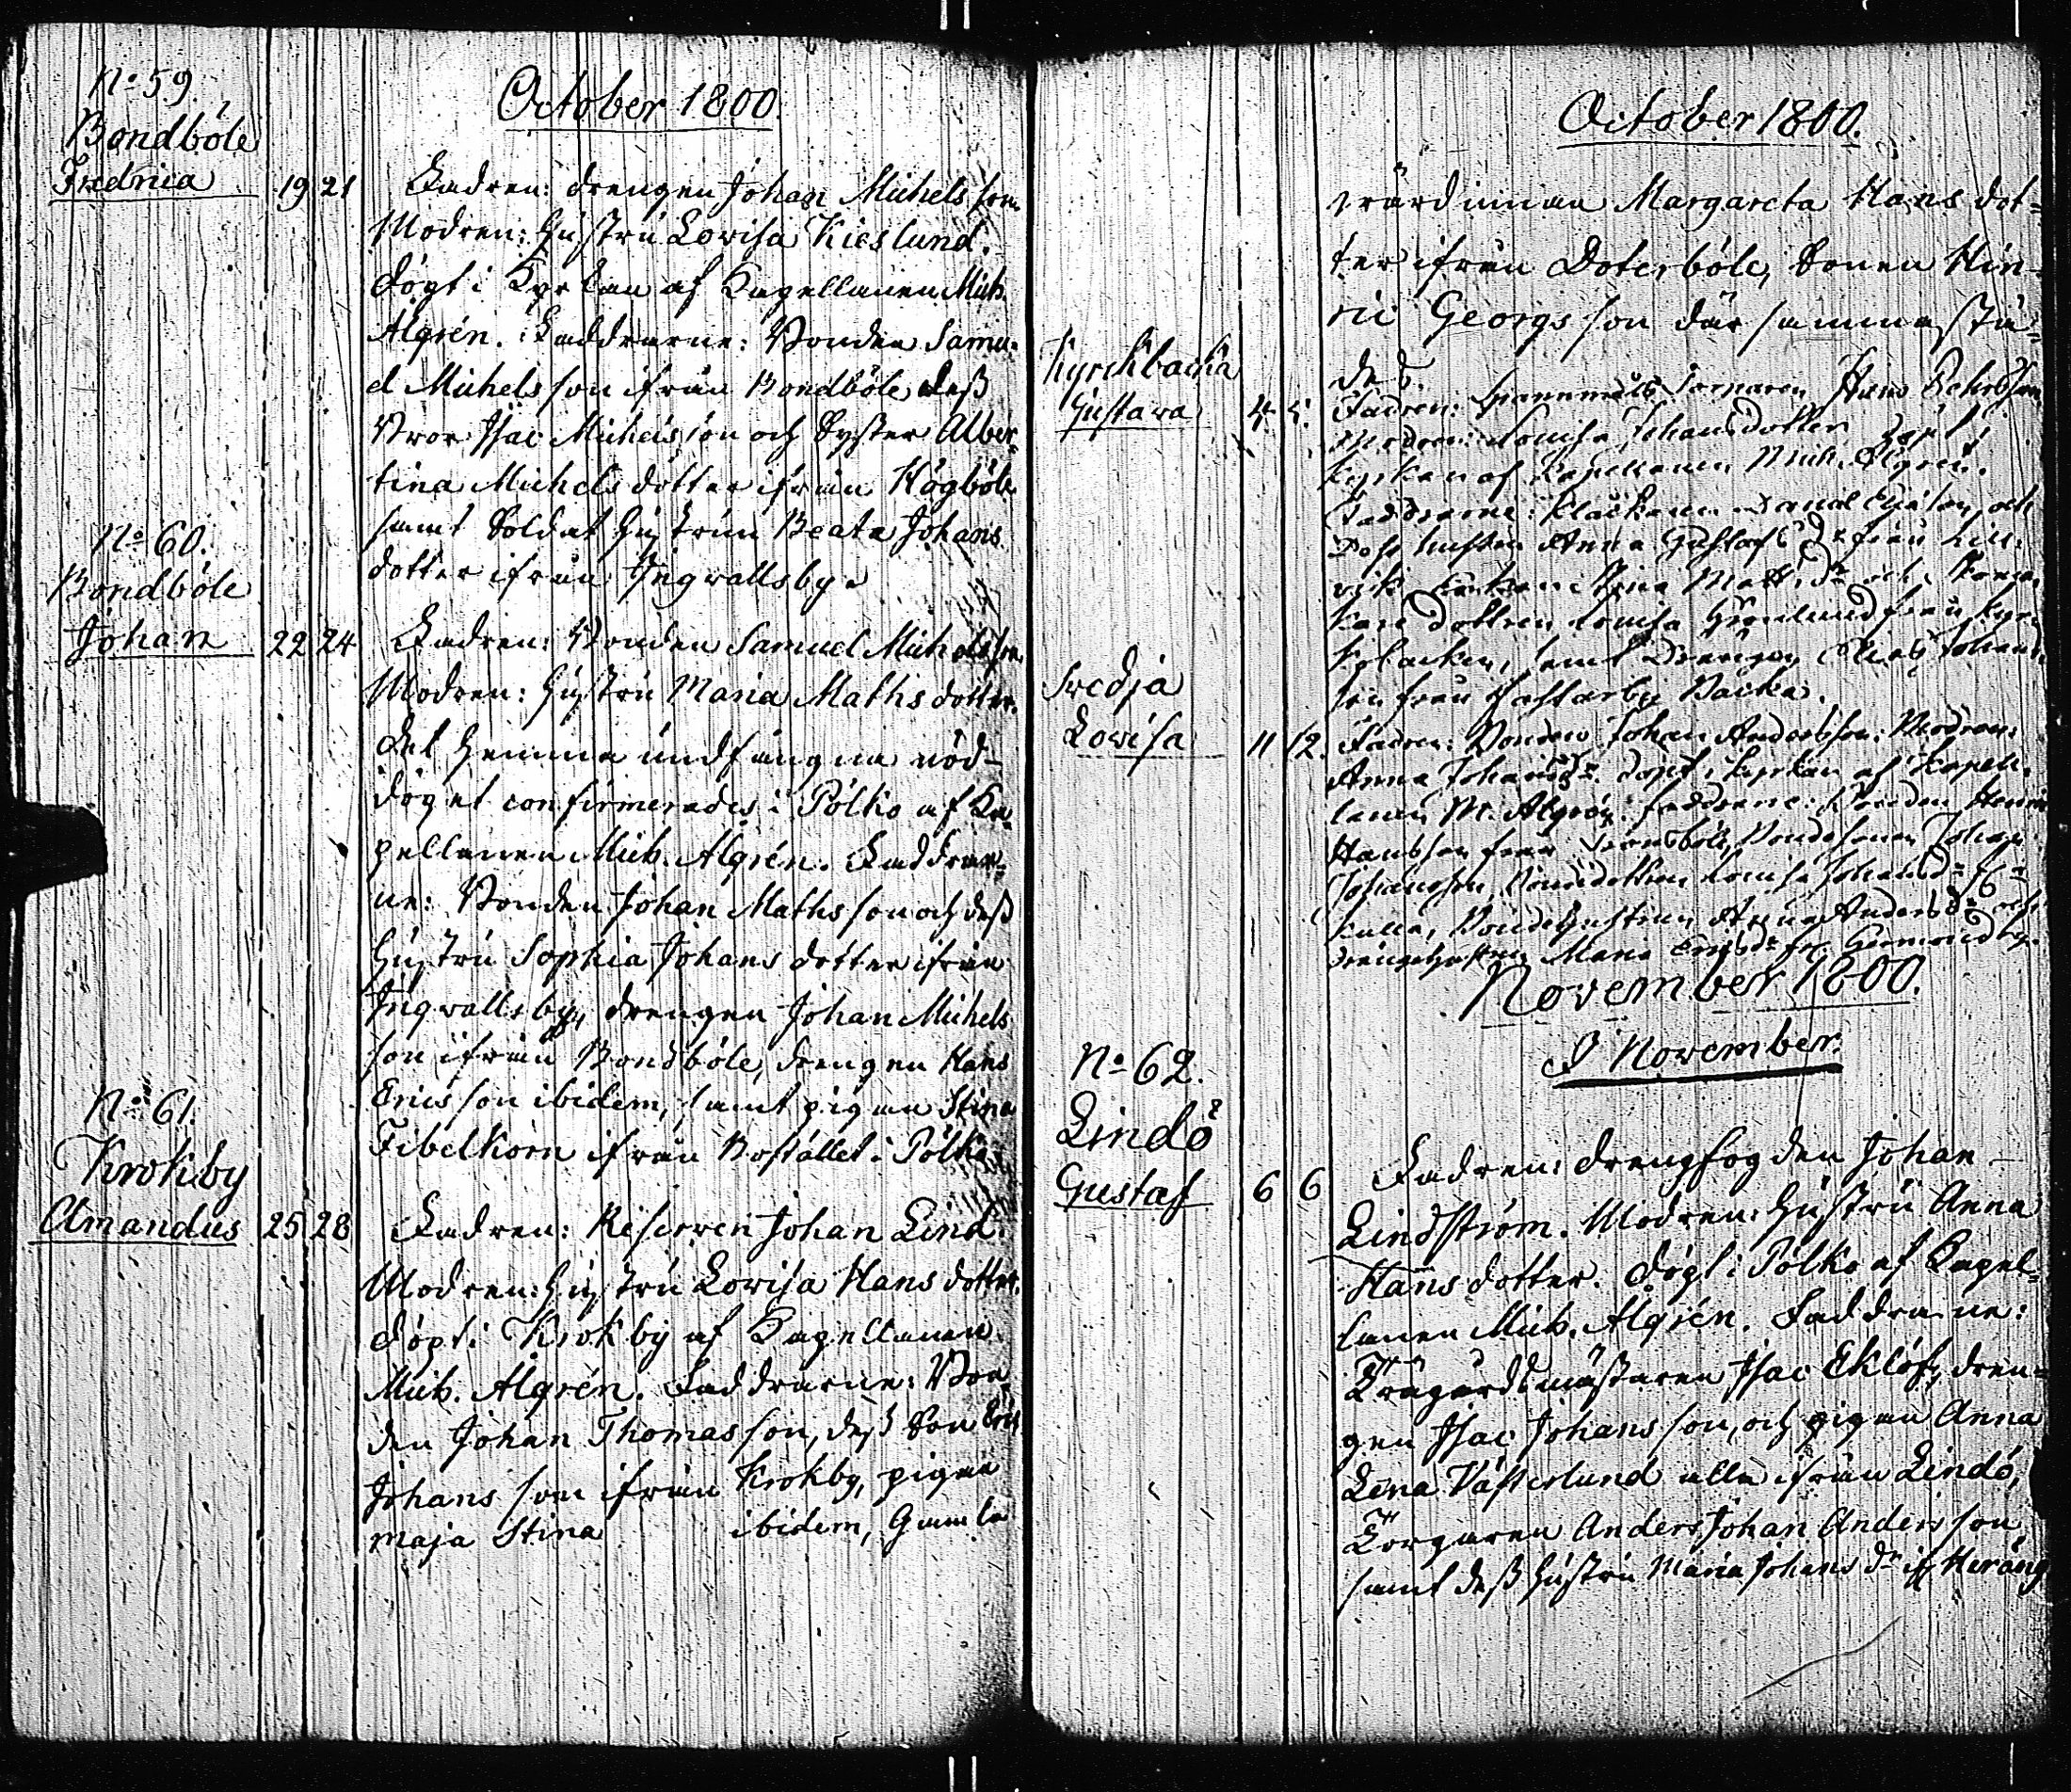 No 59.
Bondböle
Fredrica 19 21
October 1800.
Fadren: drengen Johan Michels son
Modren: hustru Lovisa Kieslund.
döpt i Kyrkan af Kapellanen Mich.
Algrén. Faddrarne: Bonden Samu-
el Michels son ifrån Bondböle dess
Bror Isac Michels son och Syster Alber-
tina Michels dotter ifrån Högböle
samt Soldat hustrun Beata Johans
dotter ifrån Ingvallsby.
No 60.
Bondböle
Johan 22 24
Fadren: Bonden Samuel Michels son,
Modren: hustru Maria Maths dotter.
Det hemma undfångna nöd-
döpet confirmerades i Pölkö af Ka-
pellanen Mich. Algrén. Faddrar-
ne: Bonden Johan Maths son och dess
hustru Sophia Johans dotter ifrån
Ingvallsby, drengen Johan Michels
son ifrån Bondböle, drengen Hans
Erics son ibidem, samt pigan Stina
Fibelkorn ifrån Bostället i Pölkö.
No 61.
Krokby
Amandus 25 28
Fadren: Reserven Johan Lind.
Modren: hustru Lovisa Hans dotter.
döpt i Krokby af Kapellanen
Mich. Algrén. Faddrarne: Bon-
den Johan Thomas son, dess Son Eric
Johans son ifrån Krokby, pigan
Maja Stina ibidem, Gamla
October 1800.
värdinnan Margareta Hans dot-
ter ifrån Dotesböle, Sonen Hin-
ric Georgs son där sammastä-
des.
Kyrckbacka
Gustava 4 5.
Fadren: Hans
Modren: Lovisa Johansdotter döpt i
Kyrkan af Kapellanen Mich. Algren.
Faddrarne: Klåckaren och
Dess hustru Anna Gustafs Dr från
Stina Matts Dr och
dottren Lovisa Grönlund från Kyr-
kobacken, samt Drängen Johans
son från Backa.
Svedja
Lovisa 11 12.
Fadren: Bonden Johan Andersson. Modren:
Anna Johans Dr. döpt i Kyrkan af Kapell-
lanen M. Algrén. faddrarne: Bonden Henric
Hansson från Bondesonen Johan
Johansson, Bondedottren Lovisa Johans Dr fr
Kulla, Bondehustrun Anna Anders Dr och
Drängehustrun Maria Erics Dr fr. Germundby.
November 1800.
I November.
No 62.
Lindö
Gustaf 6 6
Fadren: drengfogden Johan
Lindström. Modren: hustru Anna
Hans dotter. döpt i Pölkö af Kapel-
lanen Mich. Algrén. Faddrarne:
Trägårdsmästaren Isac Eklöf, dren-
gen Isac Johans son, och pigan Anna
Lena Västerlund alla ifrån Lindö,
Torparen Anders Johan Anders son
samt dess hustru Maria Johans dr if Heräng